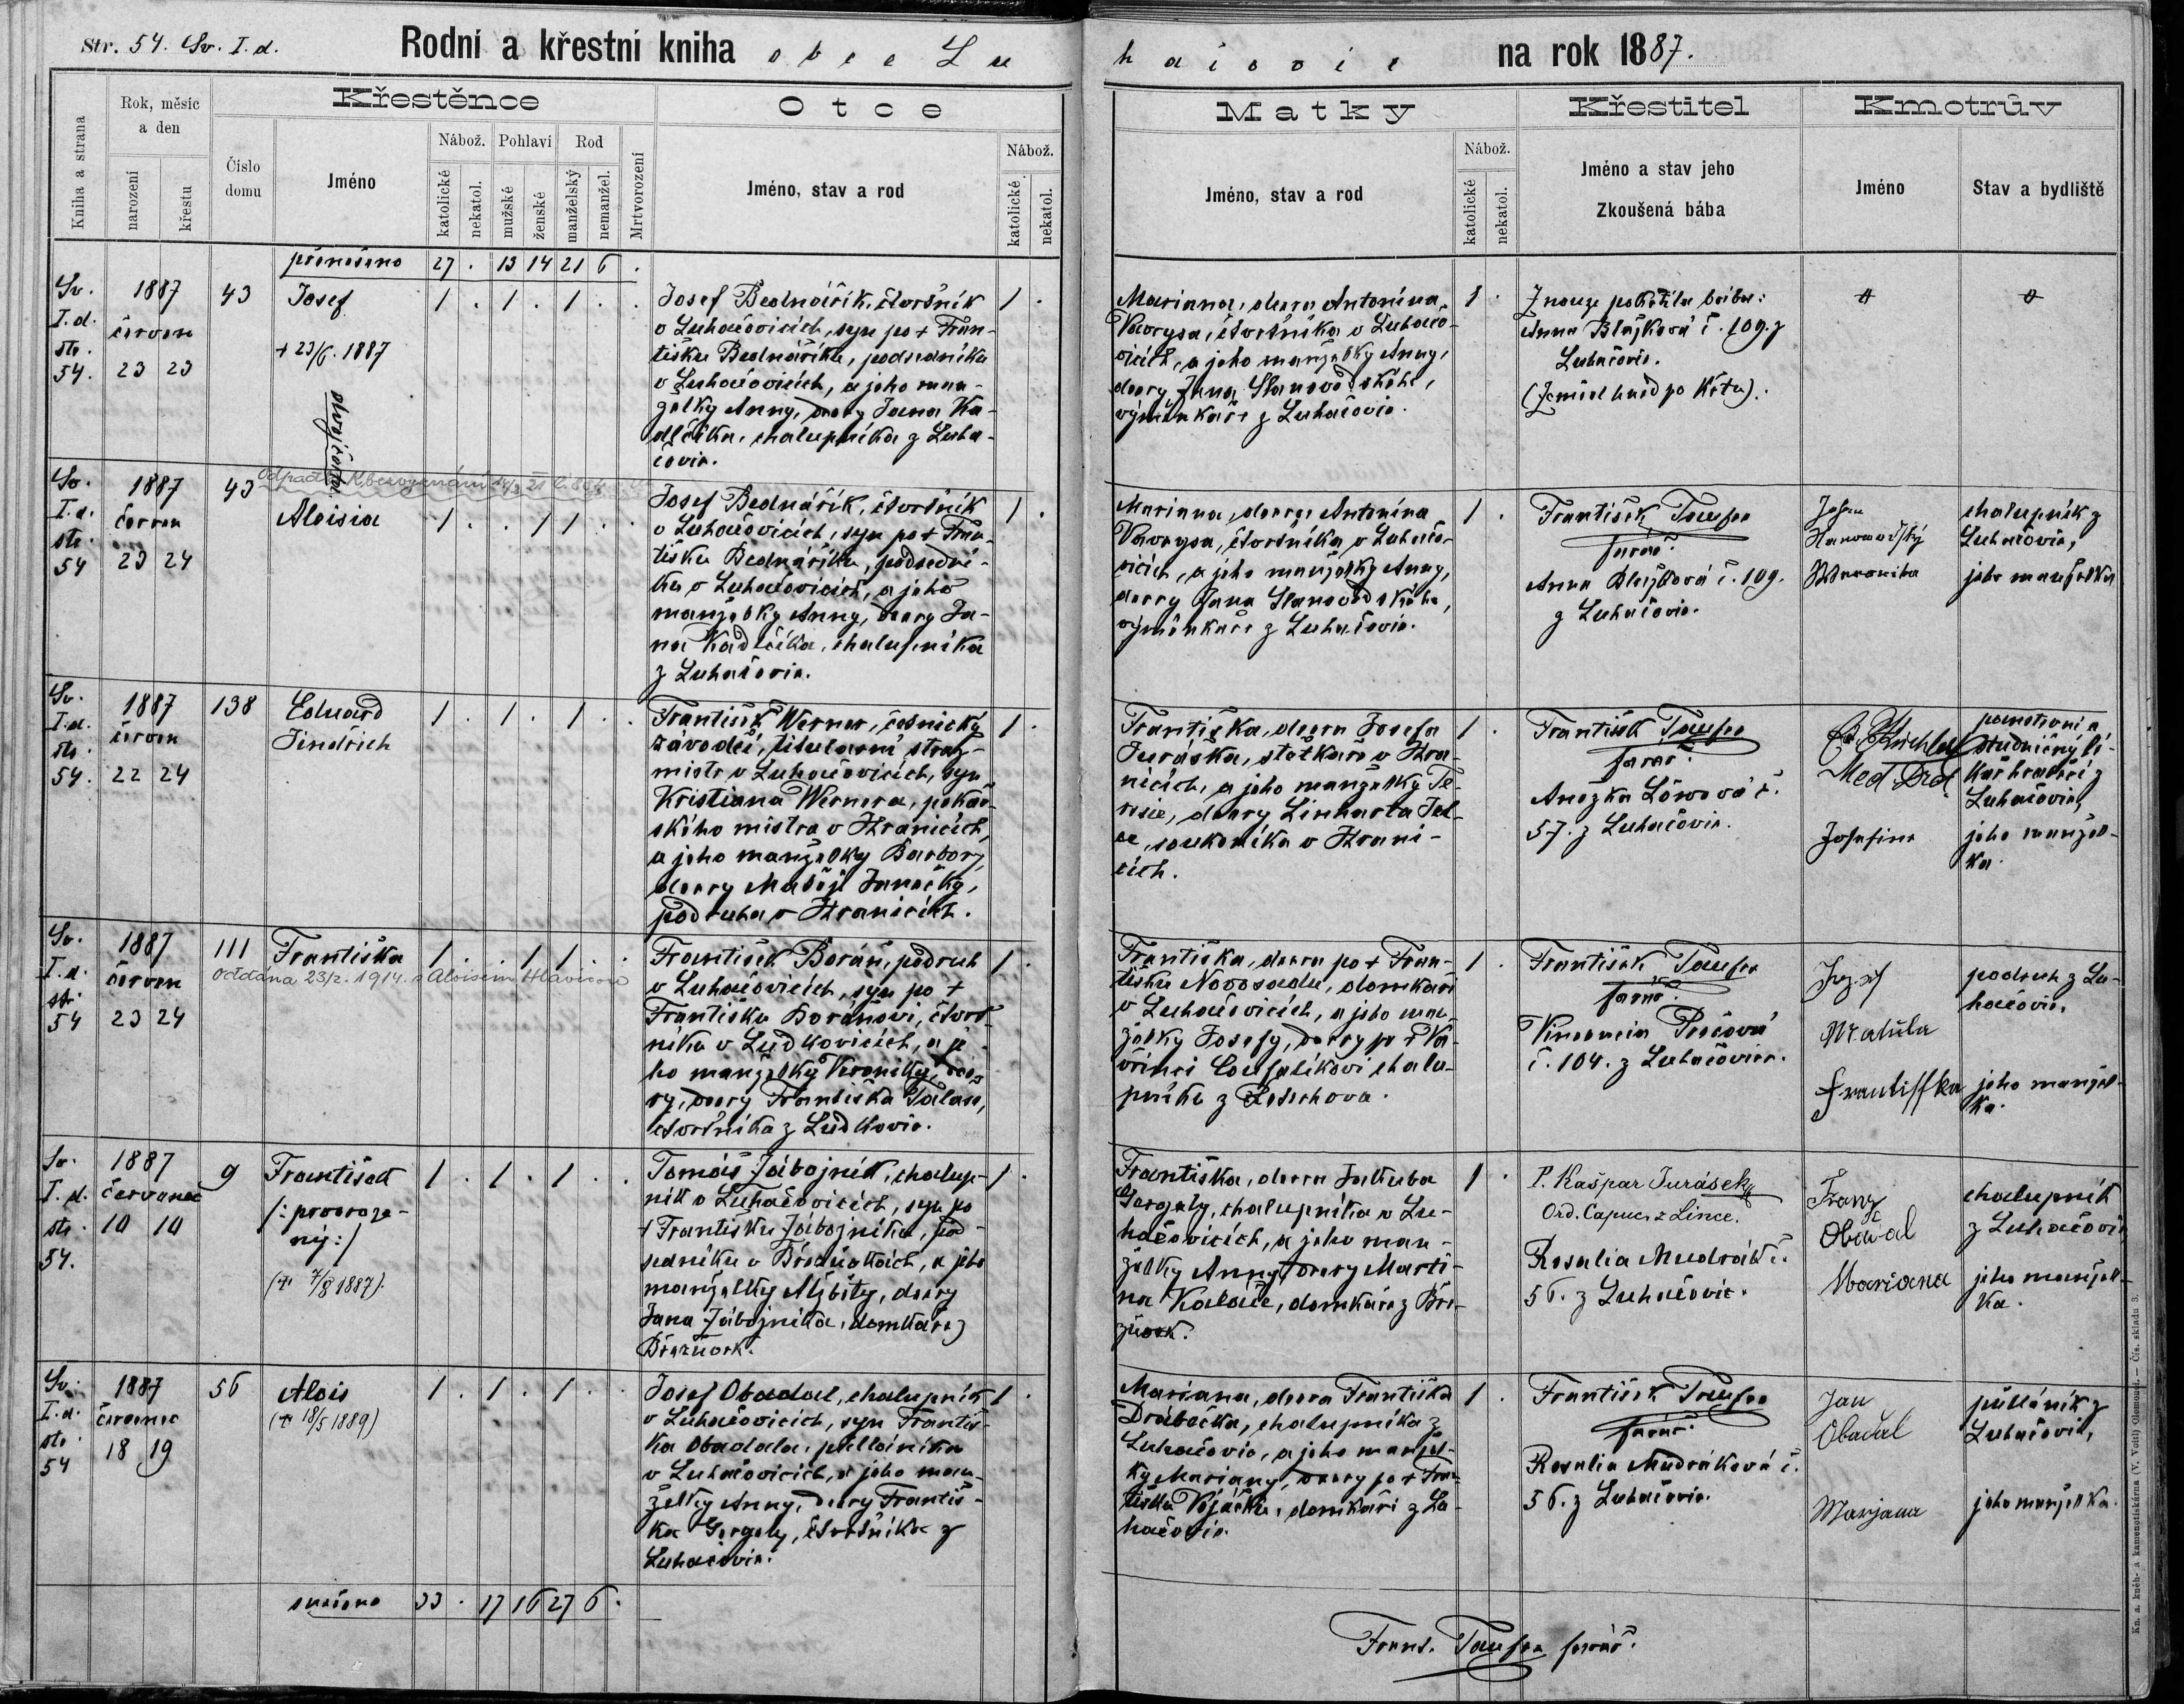 Str. 54. Sv. I. d.
Rodní a křestní kniha obce Lu
hačovic na rok 1887.
Kniha a strana
Rok, měsíc
a den
narození
křestu
Číslo
domu
Křestěnce
Jméno
Nábož.
katolické
nekatol.
Pohlaví
mužské
ženské
Rod
manželský
nemanžel.
Mrtvorození
Otce
Jméno, stav a rod
Nábož.
katolické
nekatol.
Matky
Jméno, stav a rod
Nábož.
katolické
nekatol.
Křestitel
Jméno a stav jeho
Zkoušená bába
Kmotrův
Jméno
Stav a bydliště
přenešeno 27 . 13 14 21 6 .
Sv.
I. d.
str.
54.
1887
červen
23 23
43
Josef
+ 23/6. 1887
1 . 1 . 1 . .
Josef Bednářík, čtvrtník
v Luhačovicích, syn po + Fran-
tišku Bednáříku, podsedníku
v Luhačovicích, a jeho man-
želky Anny, dcery Jana Ka-
dlčíka, chalupníka z Luha-
čovic.
1 .
Mariana, dcera Antonína
Vavrysa, čtvrtníka v Luhačo-
vicích, a jeho manželky Anny,
dcery Jana Slanovodského,
výměnkáře z Luhačovic.
1 .
Z nouze pokřtila bába:
Anna Blažková č. 109. z
Luhačovic.
(Zemřel hned po křtu).
Sv.
I. d.
str.
54
1887
červen
23 24
43
Aloisia
1 . . 1 1 . .
Josef Bednářík, čtvrtník
v Luhačovicích, syn po + Fran-
tišku Bednáříku, podsední-
ku v Luhačovicích, a jeho
manželky Anny, dcery Ja-
na Kadlčíka, chalupníka
z Luhačovic.
1 .
Mariana, dcera Antonína
Vavrysa, čtvrtníka v Luhačo-
vicích, a jeho manželky Anny,
dcery Jana Slanovodského,
výměnkáře z Luhačovic.
1 .
František Taufer
farář.
Anna Blažková č. 109.
z Luhačovic.
chalupník z
Luhačovic,
jeho manželka
Sv.
I. d.
str.
54.
1887
červen
22 24
138
Eduard
Jindřich
1 . 1 . 1 . .
František Werner, četnický
závodčí, titularní stráž-
mistr v Luhačovicích, syn
Kristiana Wernera, pekař-
ského mistra v Hranicích,
a jeho manželky Barbory,
dcery Matěje Janečky,
podruha v Hranicích.
1 .
Františka, dcera Josefa
Juráska, statkáře v Hra-
nicích, a jeho manželky Te-
resie, dcery Linharta Jel-
, soukeníka v Hrani-
cích.
1 .
František Taufer
farář.
Anežka Löwová č.
57. z Luhačovic.
Med Drd
Josefine
panstevní a
studničný lé-
kař hraběcí z
Luhačovic,
jeho manžel-
ka.
Sv.
I. d.
str.
54
1887
červen
23 24
111
Františka
Oddána 23/2. 1914. s Aloisem Hlavicou
1 . . 1 1 . .
František Boráň, podruh
v Luhačovicích, syn po +
Františku Boráňovi, čtvrt-
níku v Ludkovicích, a je-
ho manželky Veroniky,
dcery Františka Talaše,
čtvrtníka z Ludkovic.
1 .
Františka, dcera po + Fran-
tišku Novosadu, domkáři
v Luhačovicích, a jeho man-
želky Josefy, dcery po + Va-
vřinci Coufalíkovi chalu-
pníku z Podhradí.
1 .
František Taufer
farář.
č. 104. z Luhačovic.
Jozef
Matula
Frantiſſka
podruh z Lu-
hačovic,
jeho manžel-
ka.
Sv.
I. d.
str.
54.
1887
červenec
10 10
9
František
/: prvoroze-
ný :/
(+ 7/8 1887).
1 . 1 . 1 . .
Tomáš Zábojník, chalup-
ník v Luhačovicích, syn po
+ Františku Zábojníku, pod-
sedníku v Březůvkách, a jeho
manželky Alžběty, dcery
Jana Zábojníka, domkáře z
Březůvek.
1 .
Františka, dcera Jakuba
Gergely, chalupníka v Lu-
hačovicích, a jeho man-
želky Anny, dcery Marti-
na Kaláče, domkáře z Bře-
zůvek.
1 .
P. Kašpar Jurásek,
Ord. Capuc. z Lince.
Rosalia Mudrák č.
56. z Luhačovic.
Franz
Obadal
Mariana
chalupník
z Luhačovic
jeho manžel-
ka.
Sv.
I. d.
str.
54
1887
červenec
18 19
56
Alois
(+ 18/5 1889)
1 . 1 . 1 . .
Josef Obadal, chalupník
v Luhačovicích, syn Františ-
ka Obadala, půlláníka
v Luhačovicích, a jeho man-
želky Anny, dcery Františ-
ka Gergely, čtvrtníka z
Luhačovic.
1 .
Mariana, dcera Františka
Drábečka, chalupníka z
Luhačovic, a jeho manžel-
ky Mariany, dcery po + Fran-
tišku Vojáčku, domkáři z Lu-
hačovic.
1 .
František Taufer
farář.
Rosalia Mudráková č.
56. z Luhačovic.
Jan
Obadal
Marjana
půlláník z
Luhačovic,
jeho manželka.
snešeno 33 . 17 16 27 6 .
Frant. Taufer farář.
Kn. a. kněh- a kamenotiskárna (V. Voitl) Olomouc. — Čís. skladu 3.